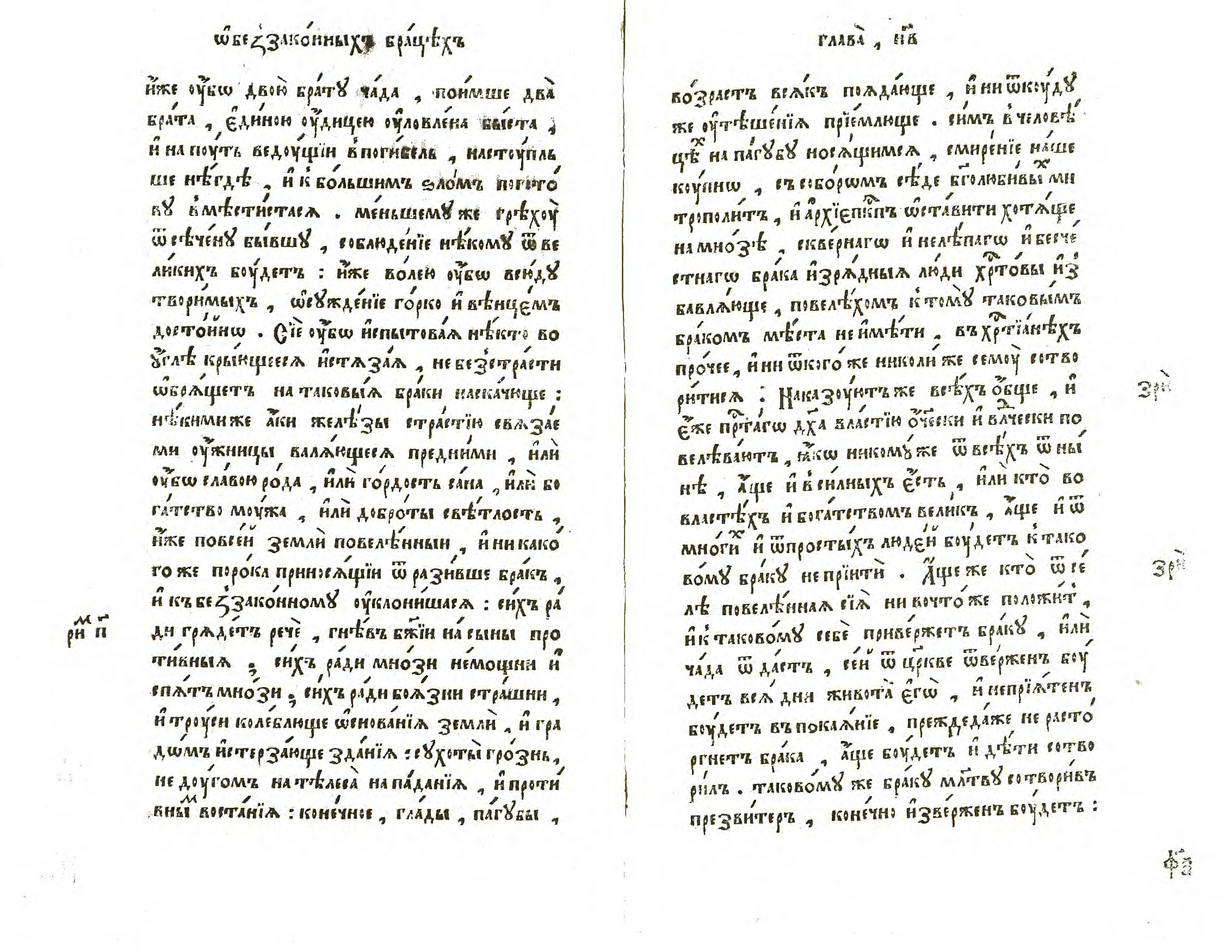 ѡ҆беꙁзако́нныхъ бра́цѣхъ
и҆́же ᲂу҆́бѡ двою̀ бра́тꙋ ча́да , пои́мше два̀
бра́та , є҆ди́ною ᲂу҆́дицею ᲂу҆ло́влена бы́ста ,
и҆ на пᲂу́ть ведᲂу́щїи в̾поги́бель , настᲂу́пль
ше нѣ́гдѣ , и҆ к̾бо́льшимъ ѕло́мъ пого́то
вꙋ в̾мѣсти́стася . ме́ньшемꙋ же грѣхᲂу̀
ѿсѣче́нꙋ бы́вшꙋ , соблюде́нїе нѣ́комꙋ ѿ ве
ли́кихъ бᲂу́детъ : и҆́же во́лею ᲂу҆́бѡ всю́дꙋ
твори́мыхъ , ѡ҆сꙋжде́нїе го́рко и҆ вѣнце́мъ
досто́йнѡ . Сїе́ ᲂу҆́бѡ и҆спыто́вая нѣ́кто во
ᲂу҆́глѣ кры́ющееся и҆стѧза́ѧ , не без̾стра́сти
ѡ҆брѧ́щетъ на таковы́ѧ бра́ки наска́чюще :
нѣ́кими же а҆́ки желѣ́зы стра́стїю свѧ́зае
ми ᲂу҆́жницы валѧ́ющеся пред̾ни́ми , и҆лѝ
ᲂу҆́бѡ сла́вою ро́да , и҆лѝ го́рдость са́на , и҆лѝ бо
га́тство мᲂу́жа , и҆лѝ добро́ты свѣ́тлость ,
и҆́же по всей земли̂ повелѣ́нныи , и҆ ни како́
го же поро́ка принося́щїи ѿ рази́вше бра́къ ,
и҆ къ беꙁзако́нномꙋ ᲂу҆клони́шася : си́хъ ра́
ди грѧде́тъ речѐ , гнѣ́въ бж҃їи на сы́ны про
ри м п҃
ти́вныѧ ; си́хъ ра́ди мно́зи не́мощни и҆
спѧ́тъ мно́зи ; си́хъ ра́ди боѧ́зни стра́шни ,
и҆ трᲂу́си коле́блюще ѡ҆снова́нїѧ земли̂ , и҆ гра
до́мъ и҆стерза́юще зда́нїѧ : сꙋхоты̀ гро́зны ,
недᲂу́гомъ на тѣлеса̀ напа́данїѧ , и҆ проти́
вны м воста́нїѧ : коне́чное , гла́ды , па́гꙋбы ,
глава̀ , н҃в
во́зрастъ всѧ́къ поѧда́юще , и҆ ни ѿкᲂу́дꙋ
же ᲂу҆тѣше́нїѧ прїе́млюще . си́мъ в̾человѣ́
цѣ х на па́гꙋбꙋ носѧ́щимсѧ , смире́нїе на́ше
кᲂу́пнѡ , съ собо́рѡмъ сѣ́де бг҃олюби́вы х ми
трополи́тъ , и҆ а҆рхїепⷭ҇кпъ ѡ҆ста́вити хотѧ́ще
на мно́зѣ , скве́рнагѡ и҆ нелѣ́пагѡ и҆ бесче́
стнагѡ бра́ка и҆зрѧ́дныѧ лю́ди хрⷭ҇то́вы и҆з̾
бавлѧ́юще , повелѣ́хомъ к̾томꙋ̀ таковы́мъ
бра́комъ мѣ́ста не и҆мѣ́ти , въ хрⷭ҇тїа́нѣхъ
про́чее , и҆ ни ѿкого́ же николи́ же семᲂу̀ сотво
ри́тисѧ : Наказᲂу́ютъ же всѣ́хъ ѻ҆́бще , и҆
зрѝ
є҆́же прⷭ҇та́гѡ дх҃а вла́стїю ѻ҆ч҃ески и҆ влⷣчески по
велѣва́ютъ , ꙗ҆́кѡ никомꙋ́же ѿ всѣ́хъ ѿ ны́
нѣ , а҆́ще и҆ в̾си́лныхъ є҆́сть , и҆лѝ кто̀ во
власте́хъ и҆ бога́тствомъ вели́къ , а҆́ще и҆ ѿ
мно́ги х и҆ ѿ просты́хъ люде́й бᲂу́детъ к̾тако
во́мꙋ бра́кꙋ не прїитѝ . А҆́ще же кто̀ ѿ се́
зрѝ
лѣ повелѣ́нная сїѧ̀ ни во что́ же положи́т ,
и҆ к̾таково́мꙋ себѐ приве́ржетъ бра́кꙋ , и҆лѝ
ча́да ѿ да́стъ , се́й ѿ цр҃кве ѿве́рженъ бᲂу́
детъ всѧ̀ дни живота̀ є҆гѡ̀ , и҆ непрїѧ́тенъ
бᲂу́детъ в̾покаѧ́нїе , пре́жде да́же не расто́
ргнетъ бра́ка , а҆́ще бᲂу́детъ и҆ дѣ́ти сотво
ри́лъ . таково́мꙋ же бра́кꙋ мл҃твꙋ сотвори́въ
презви́теръ , коне́чно и҆зве́рженъ бᲂу́детъ :
ф҃а